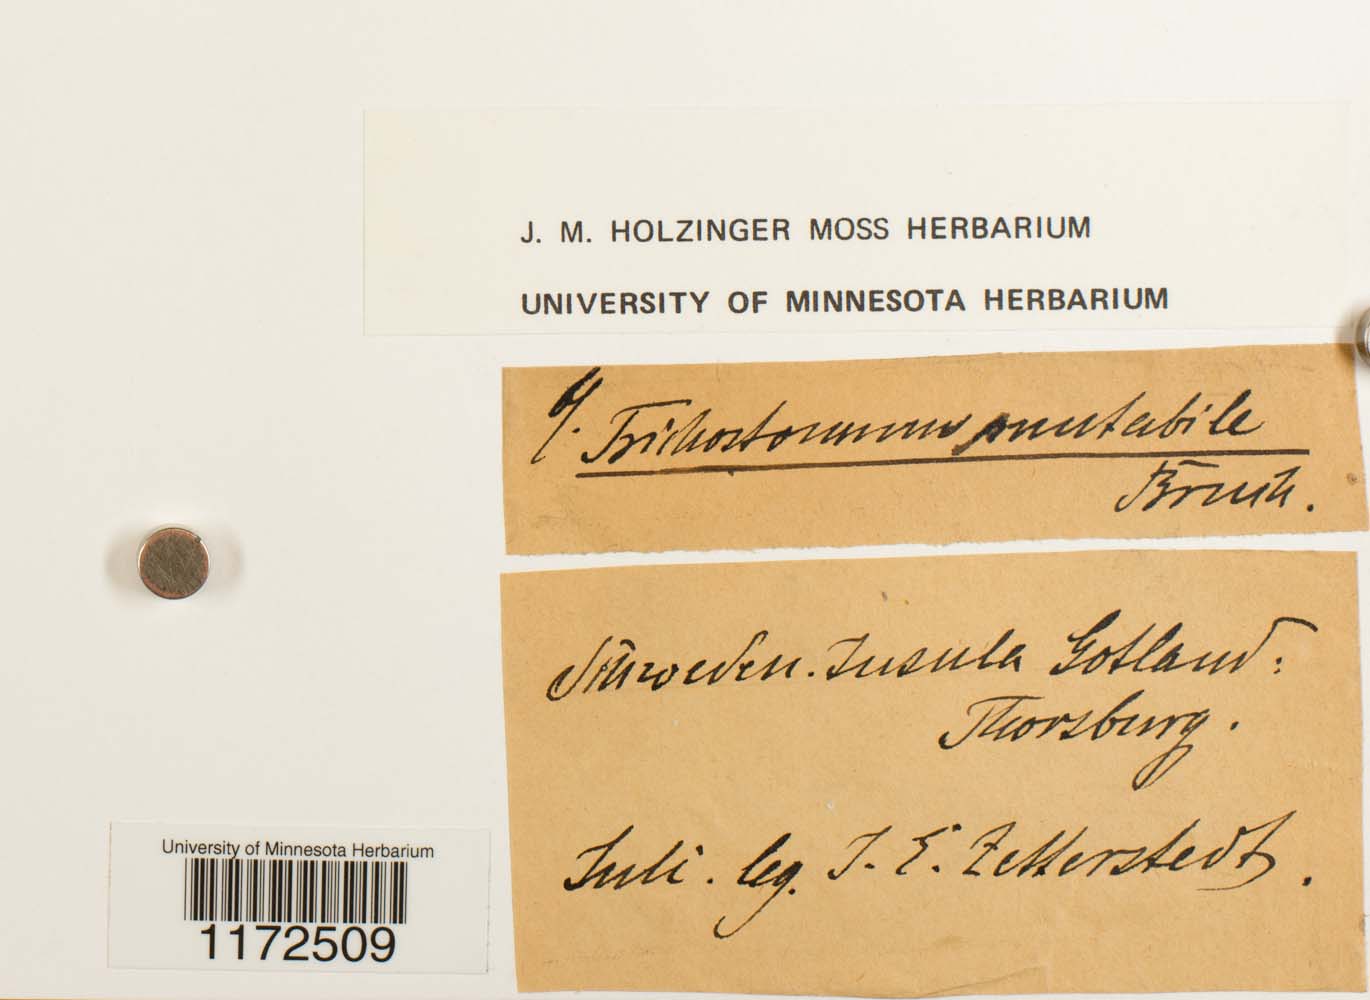 J. M. HOLZINGER MOSS HERBARIUM
UNIVERSITY OF MINNESOTA HERBARIUM
Trichostomum mutabile
Bruch.
Schweden. Insula Gotland:
Thorsburg.
Juli. leg. J. E. Zetterstedt.
University of Minnesota Herbarium
1172509